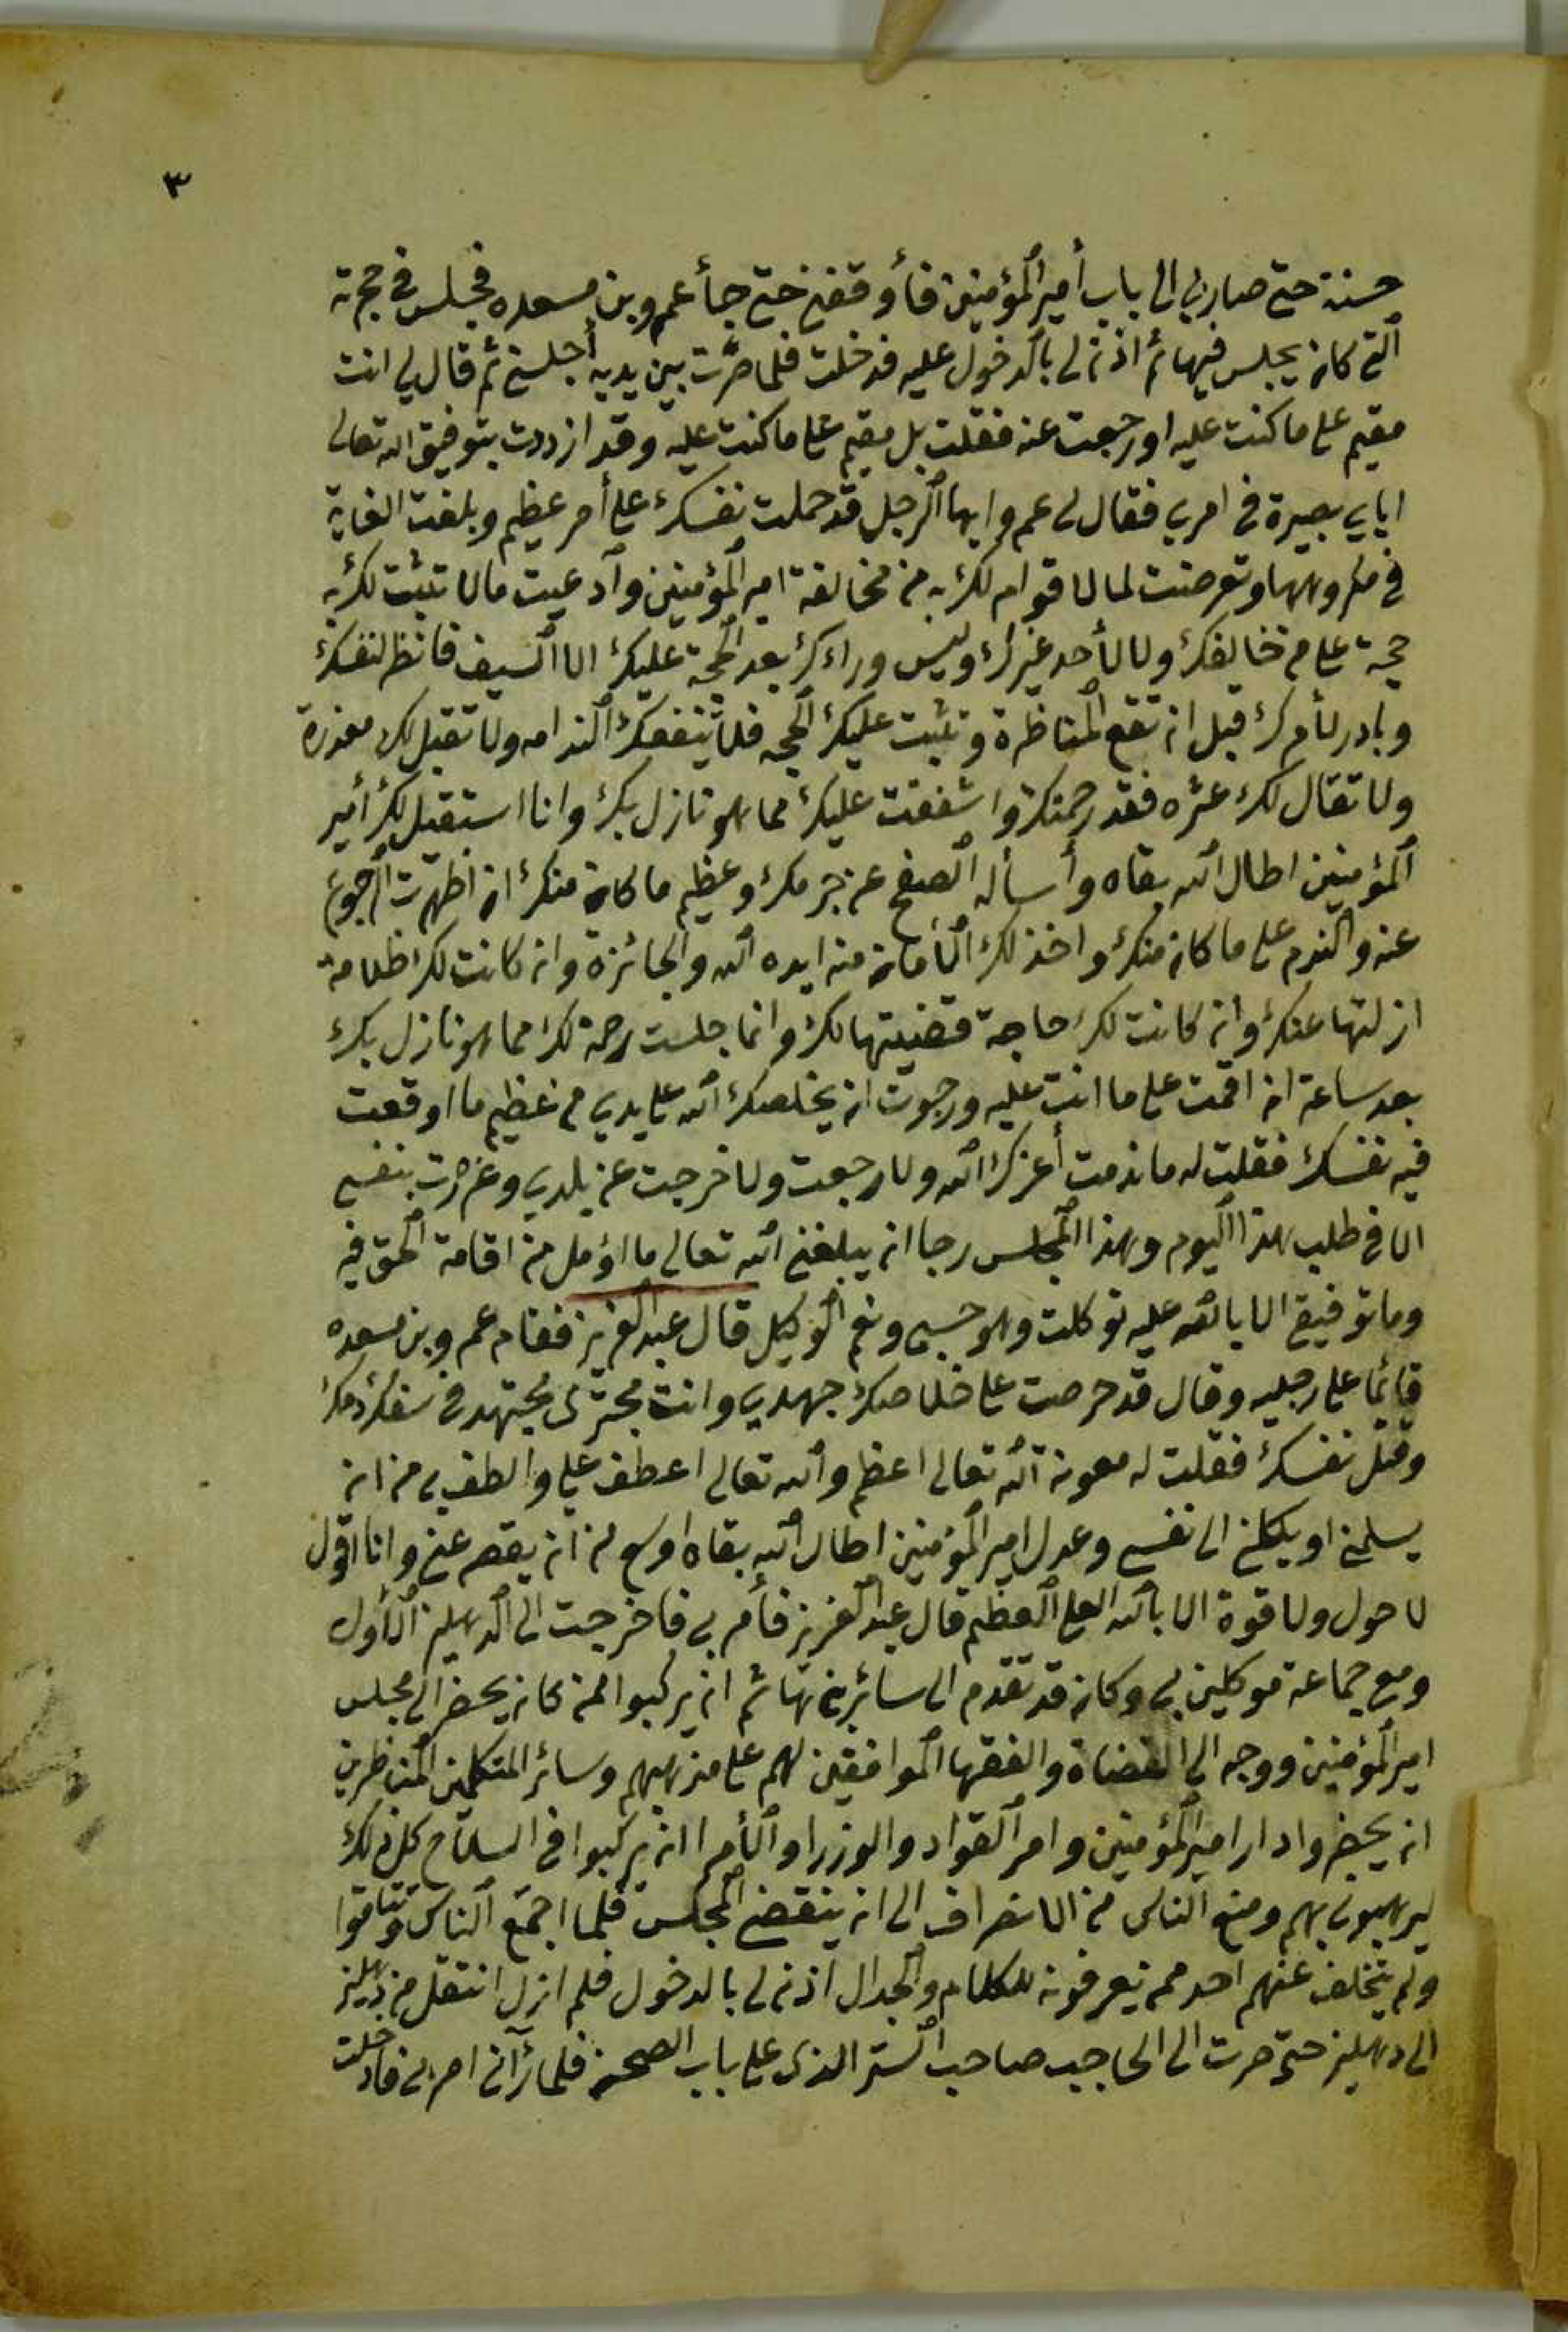 ٣
حسنة حتى صار بي الى باب أمير المؤمنين فأوقفني حتى جأ عمرو بن مسعده فجلس في حجرته
التي كان يجلس فيها ثم اذن لي بالدخول عليه فدخلت فلما صرت بين يديه أجلسني ثم قال لي انت
مقيم على ما كنت عليه او رجعت عنه فقلت بل مقيم على ما كنت عليه وقد ازددت بتوفيق الله تعالى
اياي بصيرة في امري فقال لي عمرو ايها الرجل قد حملت نفسك على أمر عظيم وبلغت الغاية
في مكروهها وتعرضت لما لا قوام لك به من مخالفة امير المؤمنين وادعيت مالا تثبت لك به
حجة على من خالفك ولا لأحد غيرك وليس وراءك بعد الحجة عليك الا السيف فانظر لنفسك
وبادر لأمرك قبل ان تقع المناظرة وتثبت عليك الحجه فلا تنفعك الندامه ولا تقبل لك معذرة
ولا تقال لك عثره فقد رحمتك واشفقت عليك مما هو نازل بك وانا استقيل لك أمير
المؤمنين اطال الله بقاه وأسأله الصفح عن جرمك وعظيم ما كان منك ان اظهرت الرجوع
عنه والندم على ما كان منك واخذ لك الأمان منه ايده الله والجائزة وان كانت لك ظلامة
ازلتها عنك وان كانت لك حاجة قضيتها لك وانما جلست رحمة لك مما هو نازل بك
بعد ساعة ان اقمت على ما انت عليه ورجوت ان يخلصك الله على يدي من عظيم ما اوقعت
فيه نفسك فقلت له ما ندمت أعزك الله ولا رجعت ولا خرجت عن بلدي وغررت بنفسي
الا في طلب هذا اليوم وهذا المجلس رجا ان يبلغني الله تعالى ما اؤمل من اقامة الحق فيه
وما توفيقي الا بالله عليه توكلت وهو حسبي ونعم الوكيل قال عبد العزيز فقام عمرو بن مسعده
قائما على رجليه وقال قد حرصت على خلاصك جهدي وانت مجترى مجتهد في سفك دمك
وقتل نفسك فقلت له معونة الله تعالى اعظم والله تعالى اعطف علي والطف بي من ان
يسلمني او يكلني الى نفسي وعدل امير المؤمنين اطال الله بقاه اوسع من ان يقصر عني وانا اقول
لا حول ولا قوة الا بالله العلي العظيم قال عبد العزيز فأمر بي فاخرجت الى الدهليز الأول
ومعي جماعة موكلين بي وكان قد تقدم الى سائر بني هاشم ان يركبوا ممن كان يحضر الى مجلس
امير المؤمنين ووجه الى القضاة والفقها الموافقين لهم على مذهبهم وسائر المتكلمين المناظرين
ان يحضروا دار امير المؤمنين وامر القواد والوزرا والأمرا ان يركبوا في السلاح كل ذلك
ليرهبوني بهم ومنع الناس من الانصراف الى ان ينقضي المجلس فلما اجتمع الناس وتتاموا
ولم يتخلف عنهم احد ممن يعرفونه للكلام والجدال اذن لي بالدخول فلم ازل انتقل من دهليز
الى دهليز حتى صرت الى الحاجب صاحب الستر الذى على باب الصحن فلما رآني امر بي فادخلت